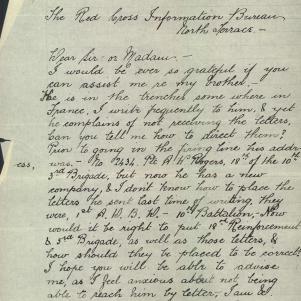 The Red Cross Information Bureau
North Terrace.-
Dear Sir or Madam.-
I would be ever so grateful if you
can assist me re my brother.-
He is in the trenches some where in
France, I write frequently to him, & yet
he complains of not receiving the letters,
Can you tell me how to direct them?
Prior to going in the firing line his addr-
ess, was- No 2434. Pte A W Rogers, 18th of the 10th
3rd Brigade, but now he has a new
company, & I don't know how to place the
letters he sent last time of writing, they
were, 1st A. W. B. W.- 10th Battalion,- Now
would it be right to put 18th Reinforcement
& 3rd Brigade, as well as those letters, &
how should they be placed to be correct?
I hope you will be able to advise
me, as I feel anxious about not being
able to reach him by letter, I am